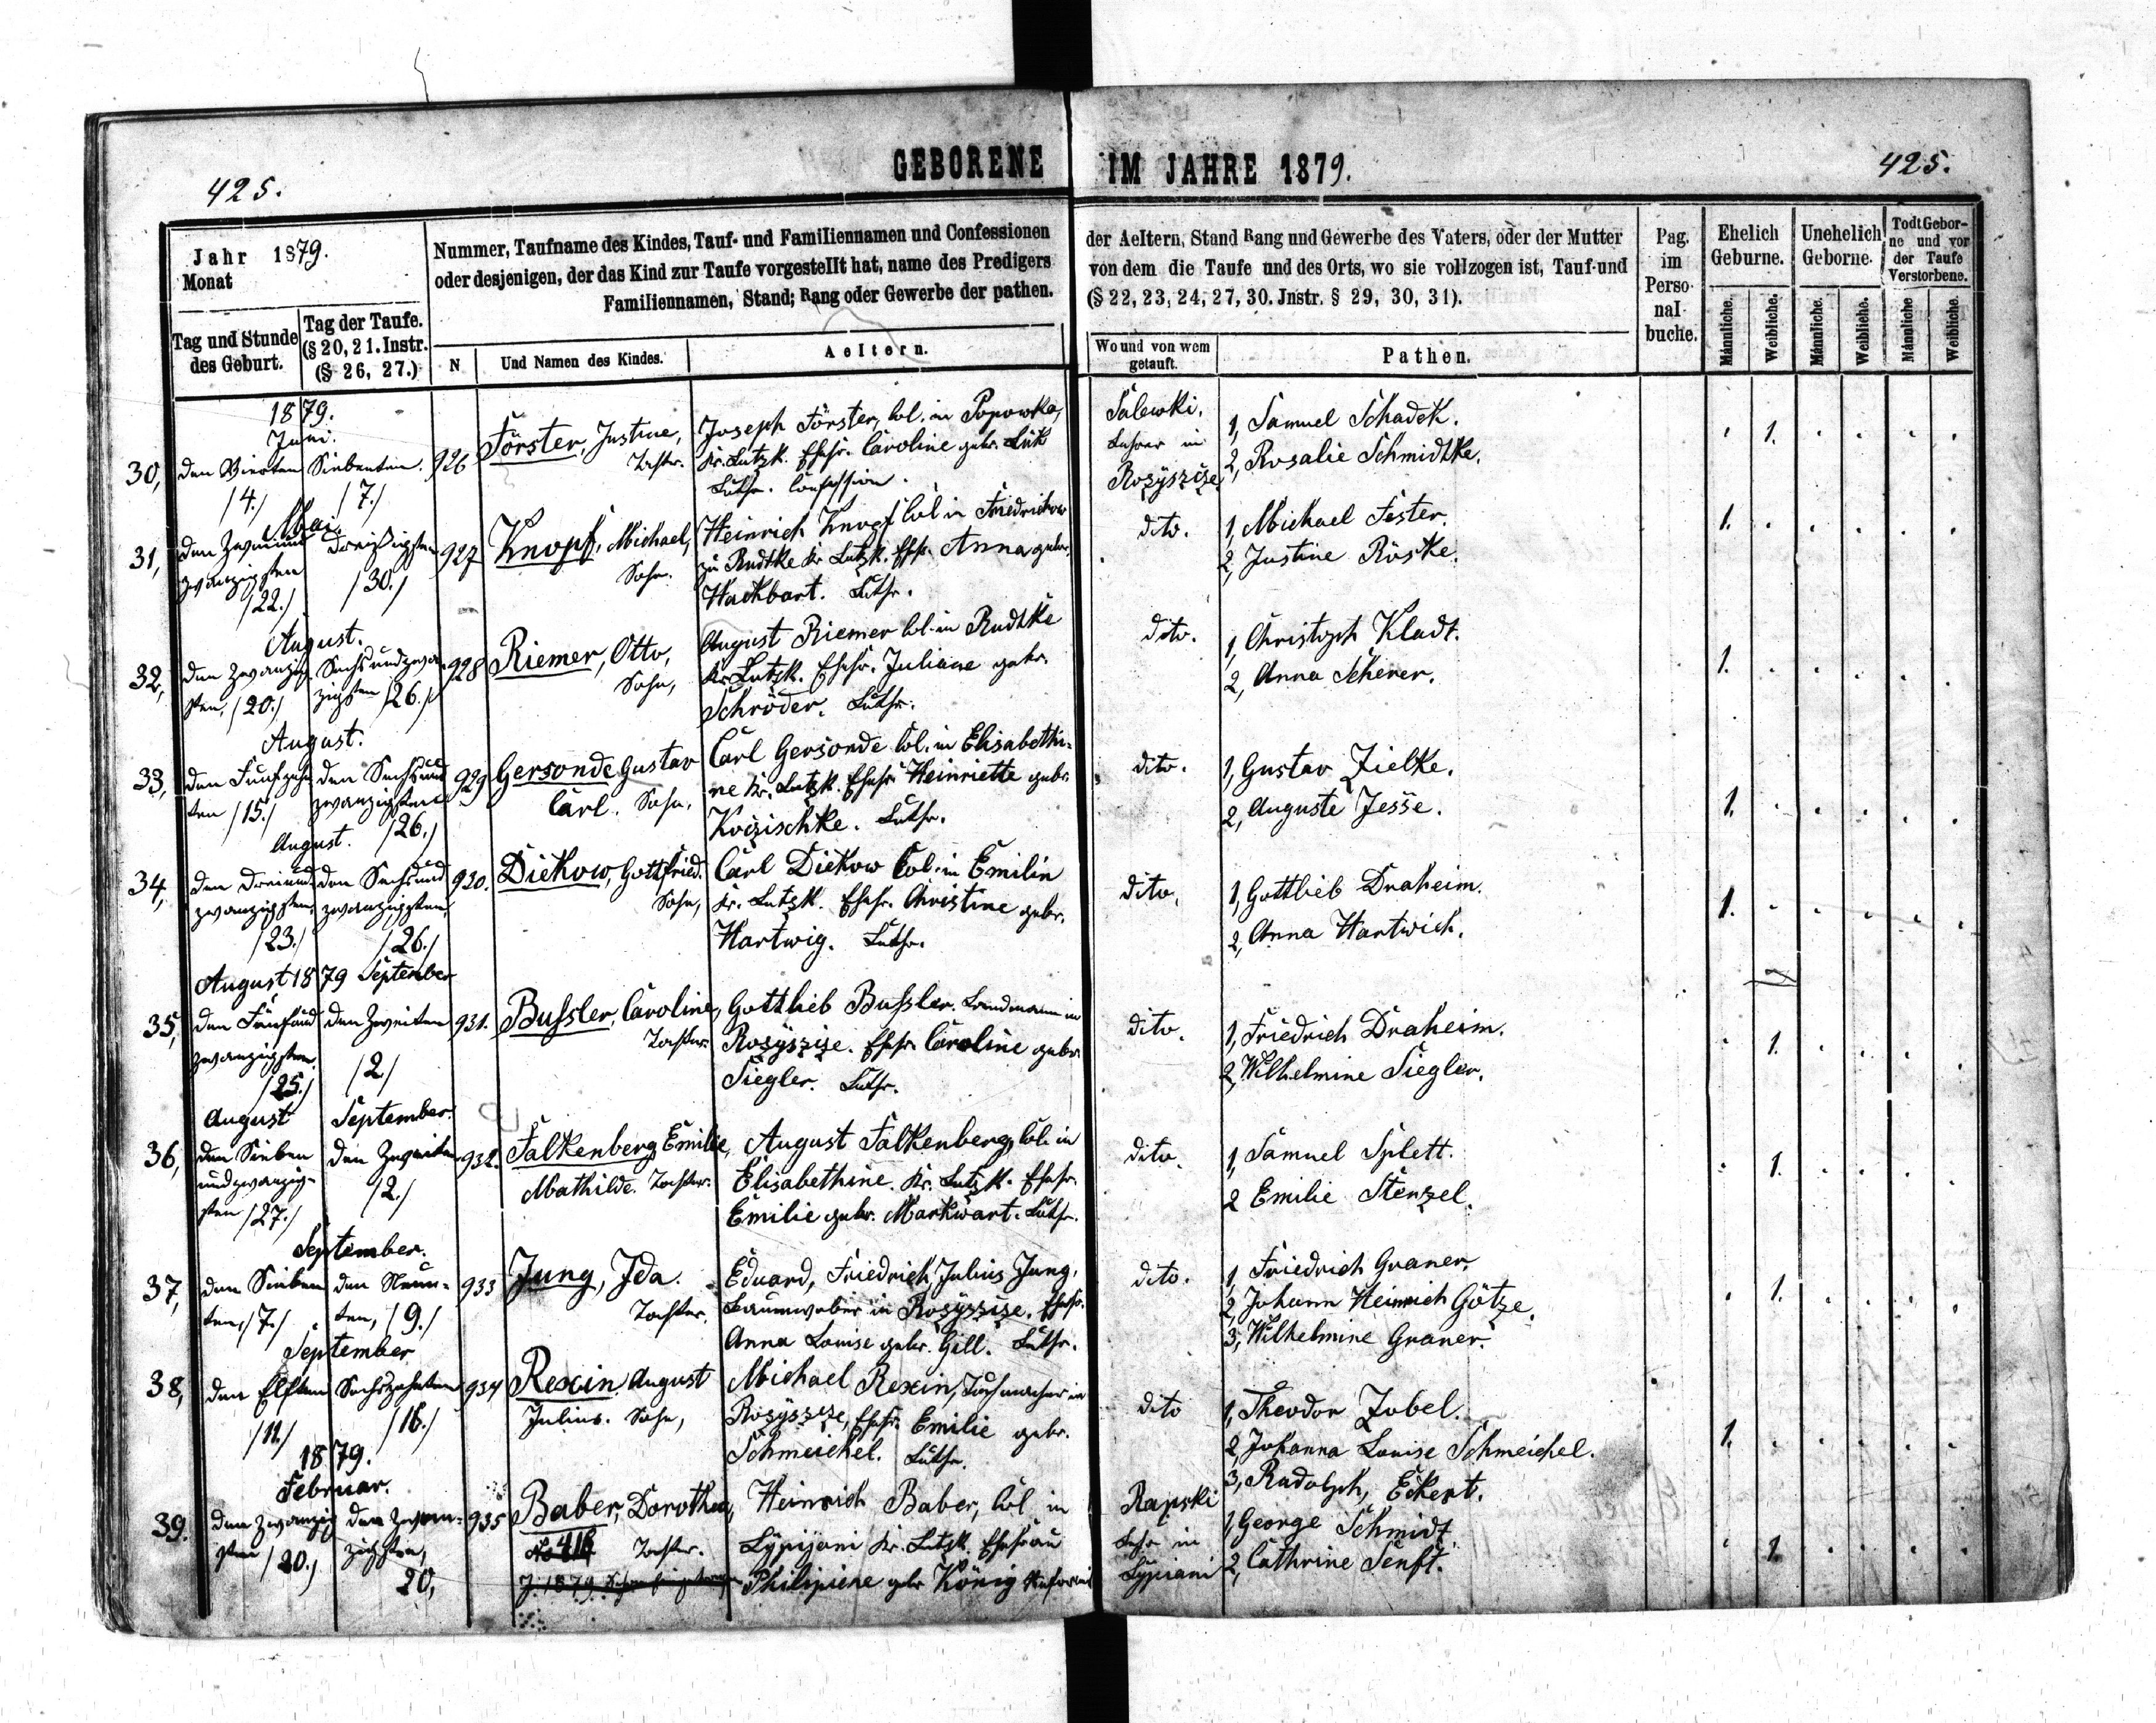 GEBORENE IM JAHRE 1879.
425.
425.
Jahr 1879.
Monat
Tag und Stunde
des Geburt.
Tag der Taufe.
(§ 20, 21. Instr.
(§ 26, 27.)
Nummer, Taufname des Kindes, Tauf- und Familiennamen und Confessionen
oder desjenigen, der das Kind zur Taufe vorgestellt hat, name des Predigers
Familiennamen, Stand; Rang oder Gewerbe der pathen.
N
Und Namen des Kindes.
Aeltern.
der Aeltern, Stand Rang und Gewerbe des Vaters, oder der Mutter
von dem die Taufe und des Orts, wo sie vollzogen ist, Tauf-und
(§ 22, 23, 24, 27, 30. Jnstr. § 29, 30, 31).
Wo und von wem
getauft.
Pathen.
Pag.
im
Perso-
nal-
buche.
Ehelich
Geburne.
Unehelich
Geborne.
Todt Gebor-
ne und vor
der Taufe
Verstorbene.
Männliche.
Weibliche.
Männliche.
Weibliche.
Männliche
Weibliche.
1879.
Juni.
30, den Vierten
/4./
Siebenten.
/7./
926
Förster, Justine,
Tochter.
Joseph Förster, Col. in Popowka,
Kr. Lutzk. Ehefr. Caroline gebr.
Luthr. Confession.
Salewki.
Lehrer in
Rozyszcze
1, Samuel Schadek.
2, Rosalie Schmidtke.
1.
Mai.
31, den Zweiund
zwanzigsten
/22./
dreißigsten
/30./
927
Knopf, Michael,
Sohn.
Heinrich Knopf Col in Friedrichow
zu Rudtke Kr Lutzk. Ehfr. Anna gebr.
Hackbart. Luthr.
dito.
1, Michael Fester.
2, Justine Röske.
1.
August.
32, den Zwanzig
sten, /20./
Sechsundzwan-
zigsten /26./
928
Riemer, Otto,
Sohn,
August Riemer Col. in Rudtke
Kr. Lutzk. Ehefr. Juliane gebr.
Schröder. Luthr.
dito.
1, Christoph Kladt.
2, Anna Scherer.
1.
August.
33, den Fünfzehn
ten /15./
den Sechsund
zwanzigsten
/26./
929
Gersonde Gustav
Carl. Sohn,
Carl Gersonde Col. in Elisabethi-
ne Kr. Lutzk. Ehefr Heinriette gebr.
Koszischke. Luthr.
dito.
1, Gustav Zielke.
2, Auguste Jesse.
1.
August.
34, den Dreiund
zwanzigsten,
/23./
den Sechsund
zwanzigsten,
/26./
930.
Diekow, Gottfried.
Sohn,
Carl Diekow Col. in Emilin
Kr. Lutzk. Ehefr. Christine gebr.
Hartwig. Luthr.
dito.
1, Gottlieb Draheim.
2, Anna Hartwich.
1.
August 1879 September
35, den Fünfund
zwanzigsten
/25./
den Zweiten
/2/
931.
Bußler, Caroline,
Tochter.
Gottlieb Bußler. Landmann in
Rozyszcze. Ehefr. Caroline gebr.
Siegler. Luthr.
dito.
1, Friedrich Draheim.
2, Wilhelmine Siegler.
1.
August September.
36, den Sieben
undzwanzig-
sten /27./
den Zweiten
/2./
932.
Falkenberg Emilie,
Mathilde. Tochter.
August Falkenberg, Col. in
Elisabethine. Kr. Lutzk. Ehefr.
Emilie gebr. Markwart. Luthr.
dito.
1, Samuel Splett.
2 Emilie Stenzel.
1.
September.
37, den Sieben
ten, /7./
den Neun-
ten, /9./
933
Jung, Ida.
Tochter.
Eduard, Friedrich, Julius Jung,
Baumweber in Rozyszcze. Ehefr.
Anna Louise gebr. Gill. Luthr.
dito.
1, Friedrich Graner.
2, Johann Heinrich Götze.
3, Wilhelmine Graner.
1.
September
38, den Elften
/11./
Sechszehnten
/16./
934
Rexin August
Julius. Sohn,
Michael Rexin, Tuchmacher in
Rozyszcze, Ehefr. Emilie gebr.
Schmeichel. Luthr.
dito
1, Theodor Zobel.
2, Johanna Louise Schmeichel.
3, Radolph, Eckert.
1.
1879.
Februar.
39. den Zwanzig
sten /20./
den Zwan-
zigsten,
20,
935
Baber, Dorothea,
No 416 Tochter.
J. 1879.
Heinrich Baber, Col. in
Lypijani Kr. Lutzk. Ehefrau
Philipiene gebr König
Rapski
Lehr in
Lypiani
1, George Schmidt
2, Cathrine Senft.
1.